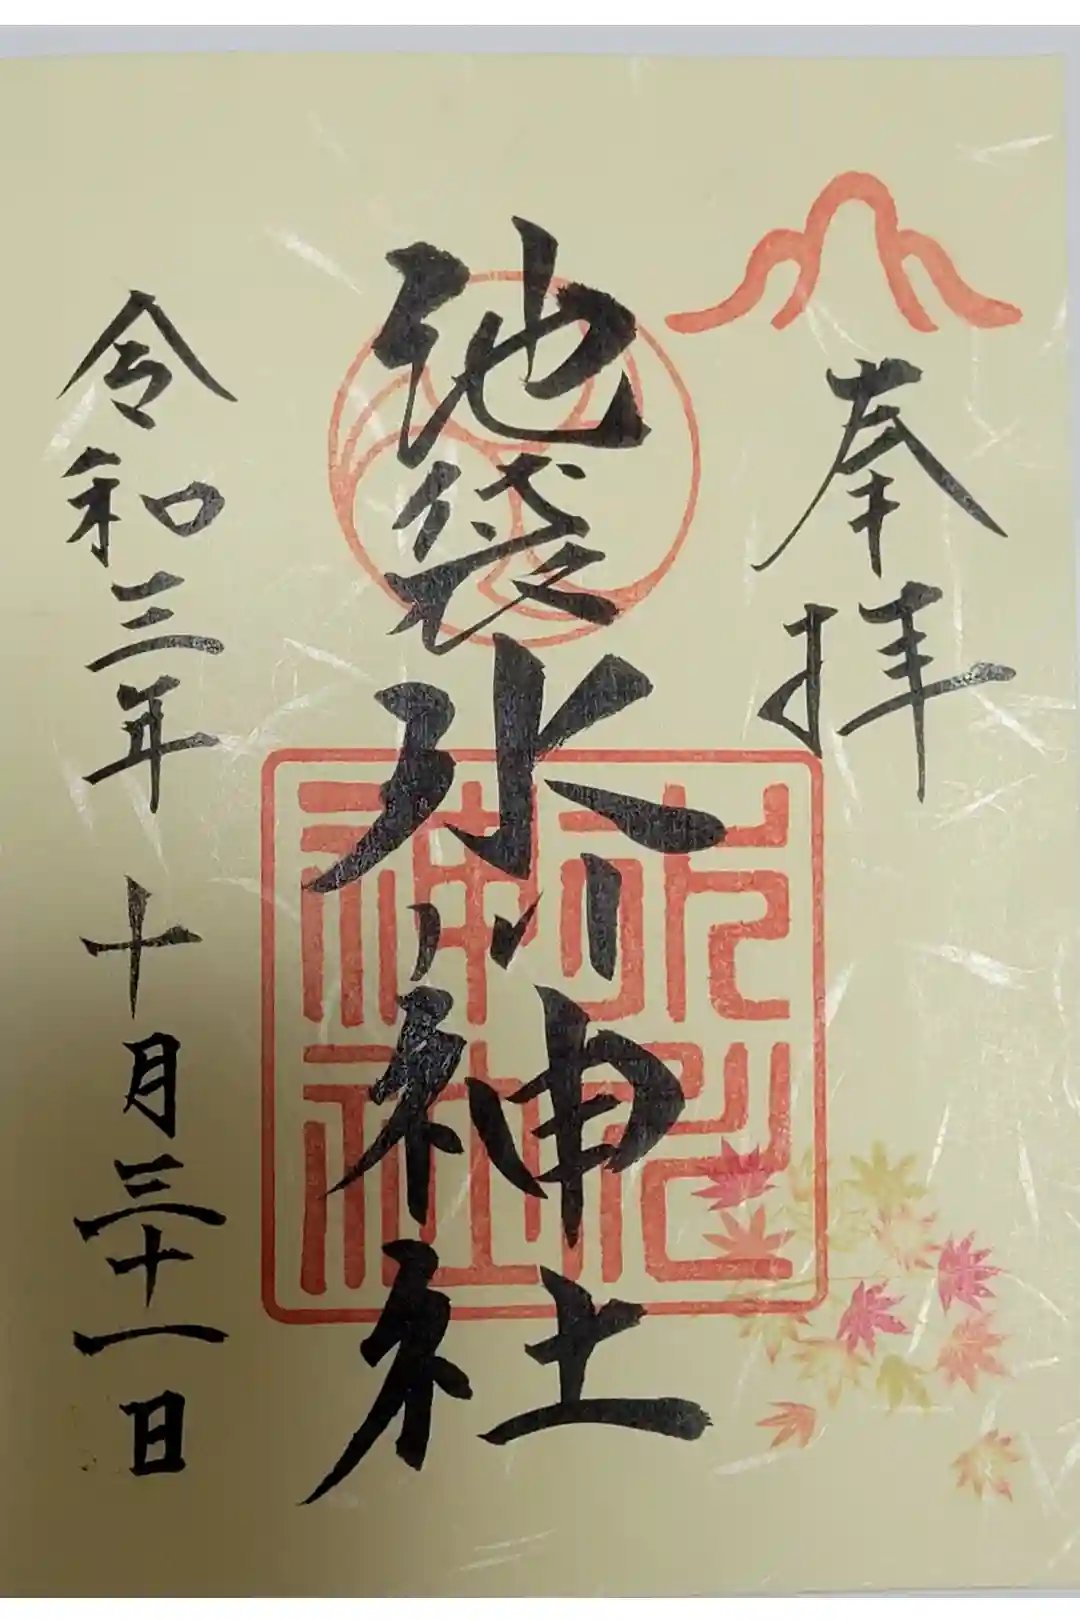 奉拝
池袋氷川神社
氷川神社
令和三年十月三十一日